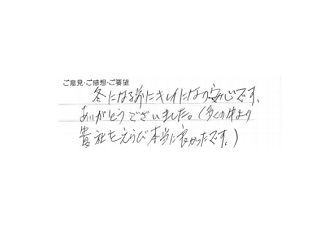 ご意見・ご感想・ご要望
冬になる前にキレイになり安心です。
ありがとうございました。(多くの中より
貴社をえらび本当に良かったです。)